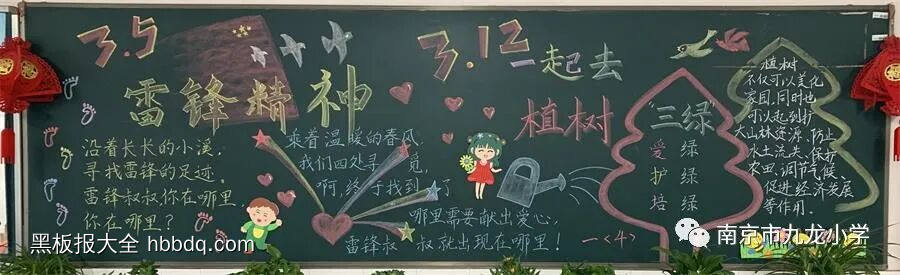 3.5
雷锋精神
沿着长长的小溪，
寻找雷锋的足迹。
雷锋叔叔你在哪里，
你在哪里？
乘着温暖的春风
我们四处寻觅，
啊，终于找到了
哪里需要献出爱心，
雷锋叔叔就出现在哪里！
3.12
一起去
植树
"三绿"
爱绿
护绿
培绿
一<4>
植树
不仅可以美化
家园，同时也
可以起到扩
大山林资源、防止
水土流失、保护
农田、调节气候、
促进经济发展
等作用。
黑板报大全 hbbdq.com
南京市九龙小学